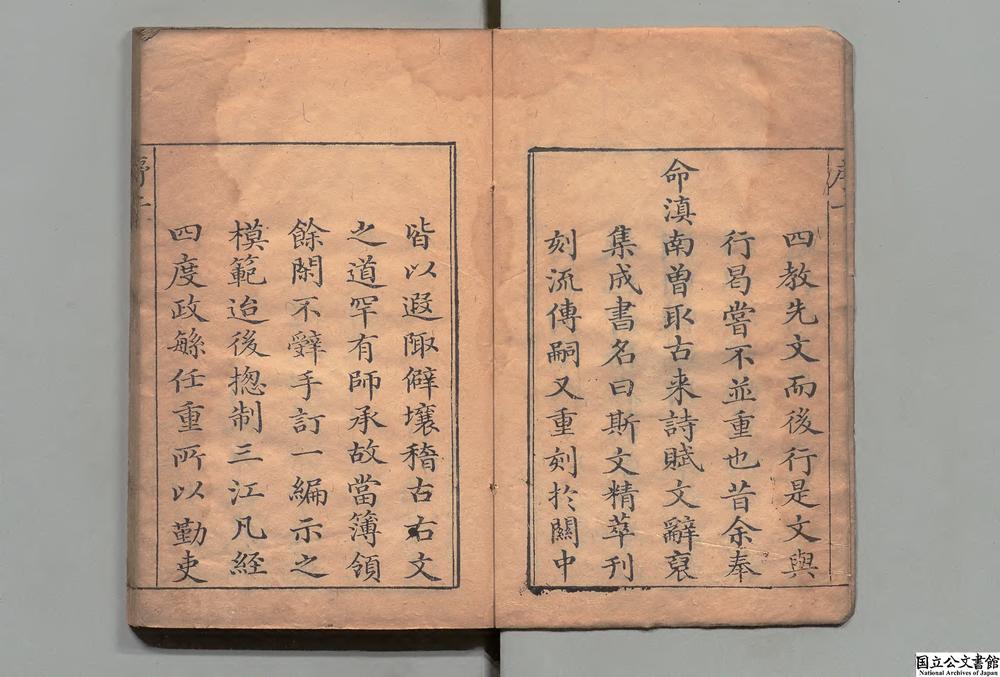 四教先文而後行是文與
行曷嘗不並重也昔余奉
命滇南曾取古来詩賦文辭裒
集成書名曰斯文精萃刊
刻流傳嗣又重刻扵關中
皆以遐陬僻壤稽古右文
之道罕有師承故當簿領
餘閑不辭手訂一編示之
模範迨後揔制三江凡経
四度政繇任重所以勤吏
国立公文書館
National Archives of Japan